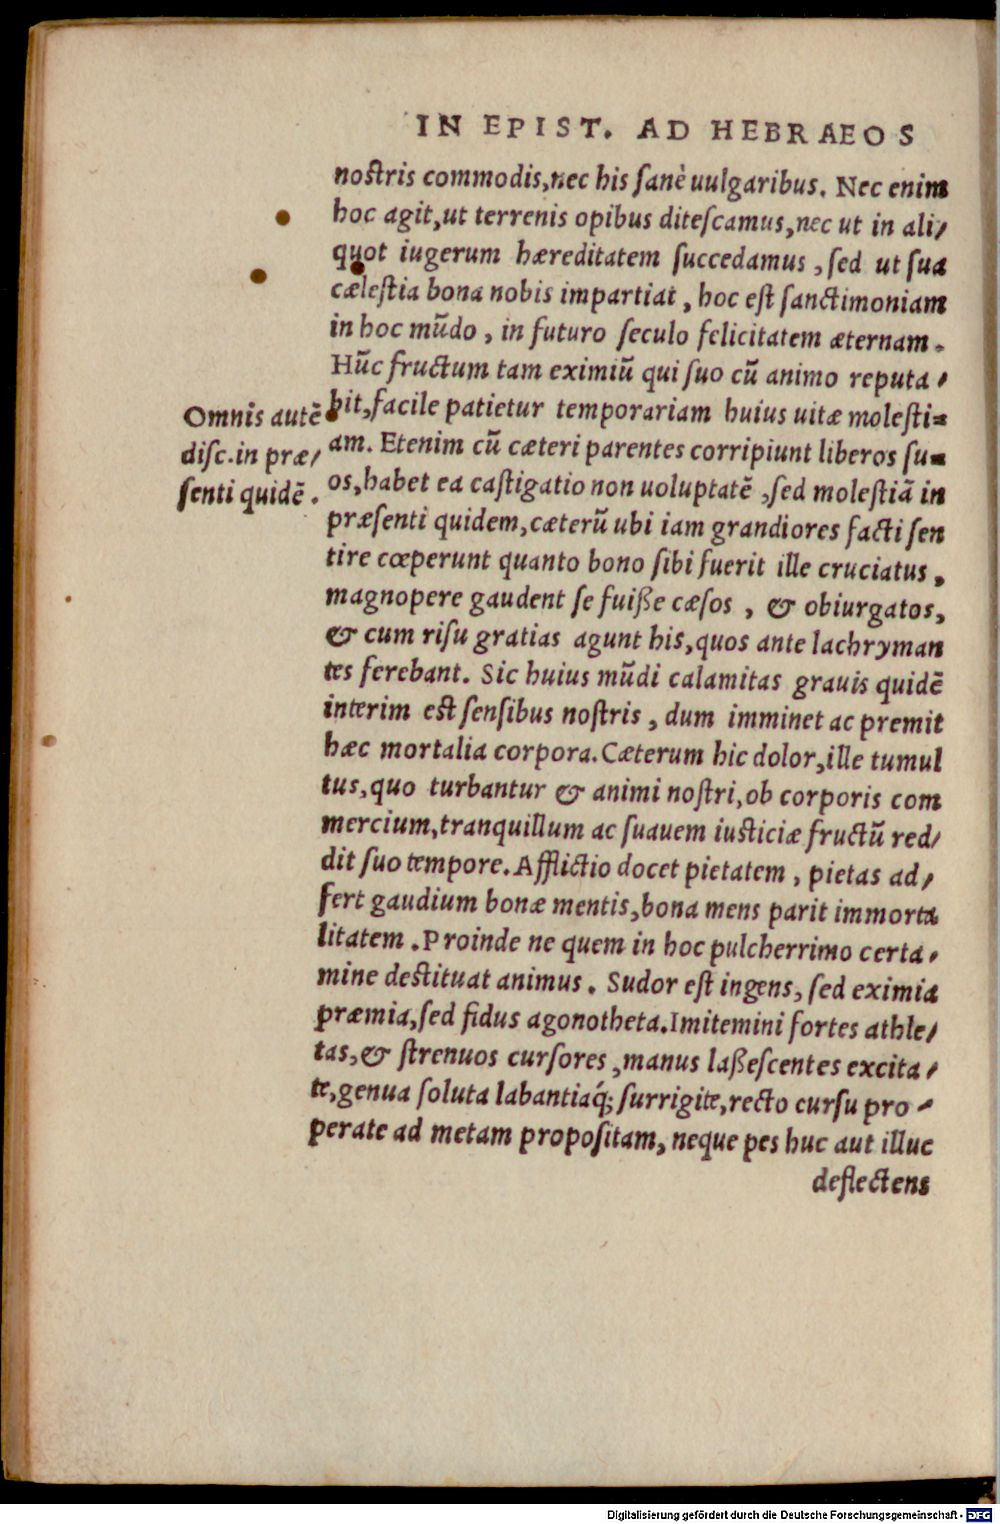 IN EPIST. AD HEBRAEOS
nostris commodis, nec his sanè uulgaribus. Nec enim
hoc agit, ut terrenis opibus ditescamus, nec ut in ali/
quot iugerum hæreditatem succedamus, sed ut sua
cælestia bona nobis impartiat, hoc est sanctimoniam
in hoc mũdo, in futuro seculo felicitatem æternam.
Hũc fructum tam eximiũ qui suo cũ animo reputa/
bit, facile patietur temporariam huius uitæ molesti=
Omnis autẽ
disc. in præ/
senti quidẽ.
am. Etenim cũ cæteri parentes corripiunt liberos su=
os, habet ea castigatio non uoluptatẽ, sed molestiã in
præsenti quidem, cæterũ ubi iam grandiores facti sen
tire cœperunt quanto bono sibi fuerit ille cruciatus,
magnopere gaudent se fuiße cæsos, & obiurgatos,
& cum risu gratias agunt his, quos ante lachryman
tes ferebant. Sic huius mũdi calamitas grauis quidẽ
interim est sensibus nostris, dum imminet ac premit
hæc mortalia corpora. Cæterum hic dolor, ille tumul
tus, quo turbantur & animi nostri, ob corporis com
mercium, tranquillum ac suauem iusticiæ fructũ red/
dit suo tempore. Afflictio docet pietatem, pietas ad/
fert gaudium bonæ mentis, bona mens parit immorta
litatem. Proinde ne quem in hoc pulcherrimo certa/
mine destituat animus. Sudor est ingens, sed eximia
præmia, sed fidus agonotheta. Imitemini fortes athle/
tas, & strenuos cursores, manus laßescentes excita/
te, genua soluta labantiaq́; surrigite, recto cursu pro/
perate ad metam propositam, neque pes huc aut illuc
deflectens
Digitalisierung gefördert durch die Deutsche Forschungsgemeinschaft - DFG